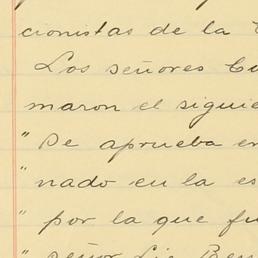 cionistas de la
Los señores
maron el siguie
" Se aprueba en
" nado en la es
" por la que fu
" señor Lic. Ben